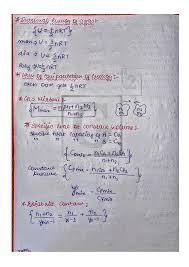 * Internal Energy of gas:-
U = f/2 nRT
mono U = 3/2 nRT
dia U = 5/2 nRT
Poly U = nRT
* Law of Equipartition of Energy:-
each DOF gets 1/2 nRT
* Gas Mixture:
Mmix = n₁M₁+n₂M₂ / n₁+n₂
* Specific heat at constant volume:
specific heat capacity of A = Cv₁
B = Cv₂
Cvmix = n₁Cv₁ + n₂Cv₂ / n₁+n₂
Constant pressure Cpmix = n₁Cp₁ + n₂Cp₂ / n₁+n₂
γmix = Cpmix / Cvmix
* Adiabatic Constant:
n₁+n₂ / γm-1 = n₁ / γ-1 + n₂ / γ-1